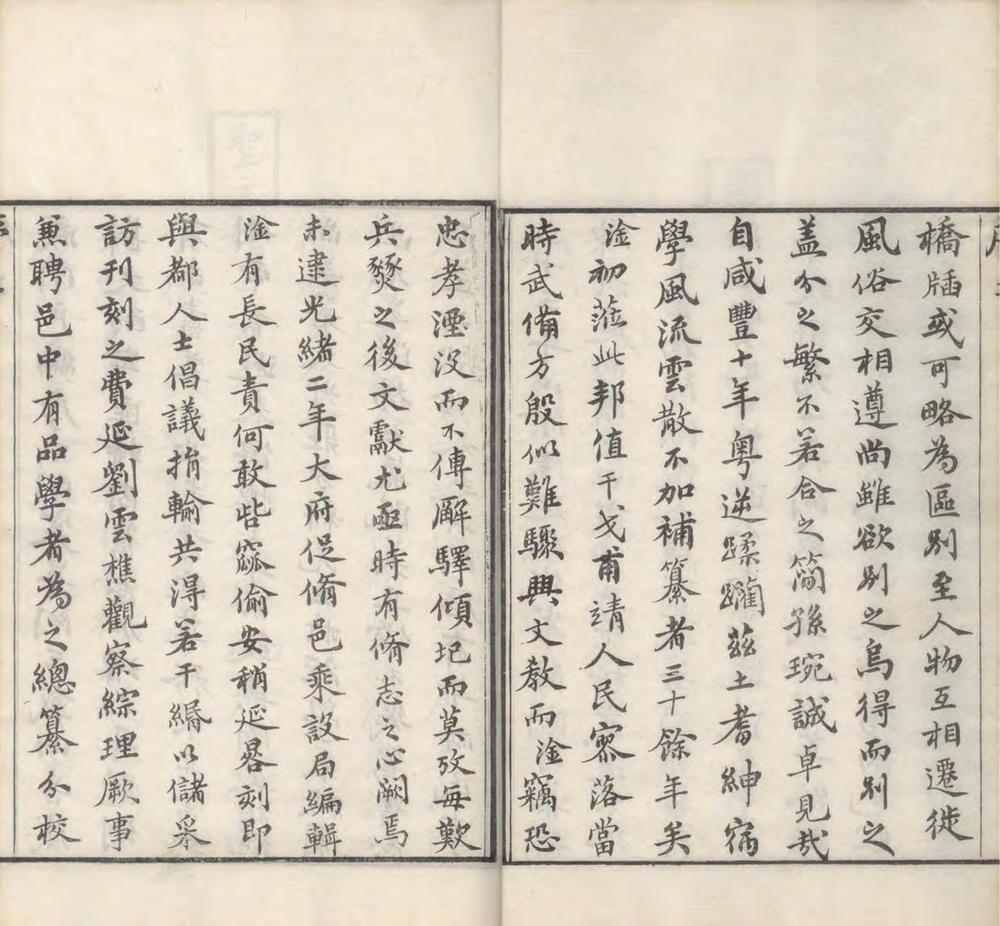 橋牐或可略為區別至人物互相遷徙
風俗交相遵尚雖欲別之烏得而別之
蓋分之繁不若合之簡孫琬誠卓見哉
自咸豐十年粵逆蹂躪茲土耆紳宿
學風流雲散不加補纂者三十餘年矣
淦初蒞此邦值干戈甫靖人民寥落當
時武備方殷似難驟興文教而淦竊恐
忠孝湮沒而不傳廨驛傾圮而莫攷每歎
兵燹之後文獻尤亟時有脩志之心闕焉
未逮光緒二年大府促脩邑乘設局編輯
淦有長民責何敢呰窳偷安稍延晷刻即
與都人士倡議捐輸共得若干緡以儲采
訪刊刻之費延劉雲樵觀察綜理厥事
兼聘邑中有品學者為之總纂分校